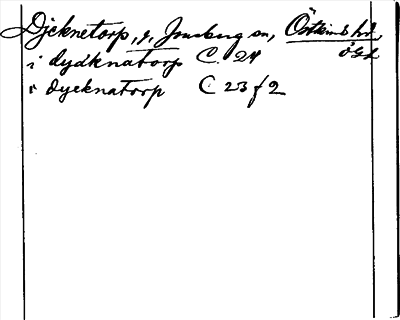 Djeknetorp, s. Jonsberg sn, Östkinds hd,
ÖGL
i dydknatorp C. 24
i dyeknatorp C 23 f 2